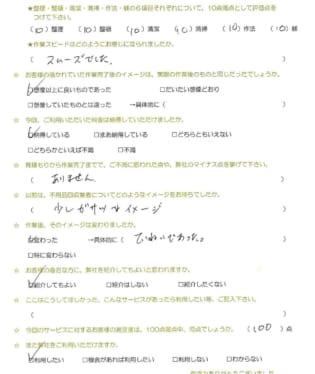 ★整理・整頓・清潔・清掃・作法・躾の6項目それぞれについて、10点満点として評価点を
つけて下さい。
(10)整理 (10)整頓 (10)清潔 (10)清掃 (10)作法 (10)躾
★作業スピードはどのようにお感じになられましたか。
( スムーズでした。 )
☆ お客様の描かれていた作業完了後のイメージは、実際の作業後のものと同じだったでしょうか。
□想像以上に良いものであった □だいたい想像どおり
□想像していたものとは違った →具体的に( )
☆ 今回、ご利用いただいた料金は納得していただけましたか。
□納得している □まあ納得している □どちらともいえない
□どちらかといえば不満 □不満
☆ 見積もりから作業完了までで、ご不満に思われた点や、弊社のマイナス点を挙げて下さい。
( ありません )
☆ 以前は、不用品回収業者についてどのようなイメージをお持ちでしたか。
( 少しガサツなイメージ )
☆ 作業後、そのイメージは変わりましたか。
□変わった →具体的に( ていねいであった。 )
□特に変わらない
☆ お客様の身近な方に、弊社を紹介してもよいと思われますか。
□紹介してもよい □紹介はしない □紹介したくない
☆ ここはこうしてほしかった、こんなサービスがあったら利用したい等、ご記入下さい。
( )
☆ 今回のサービスに対するお客様の満足度は、100点満点中、何点でしょうか。 (100)点
☆ また弊社をご利用いただけますか。
□利用したい □機会があれば利用したい □利用しない □わからない